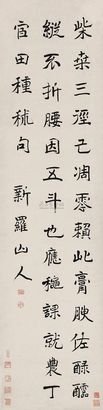 柴桑三徑已凋零賴此膏腴佐醁醽
縱不折腰因五斗也應課就農丁
官田種秫句 新羅山人